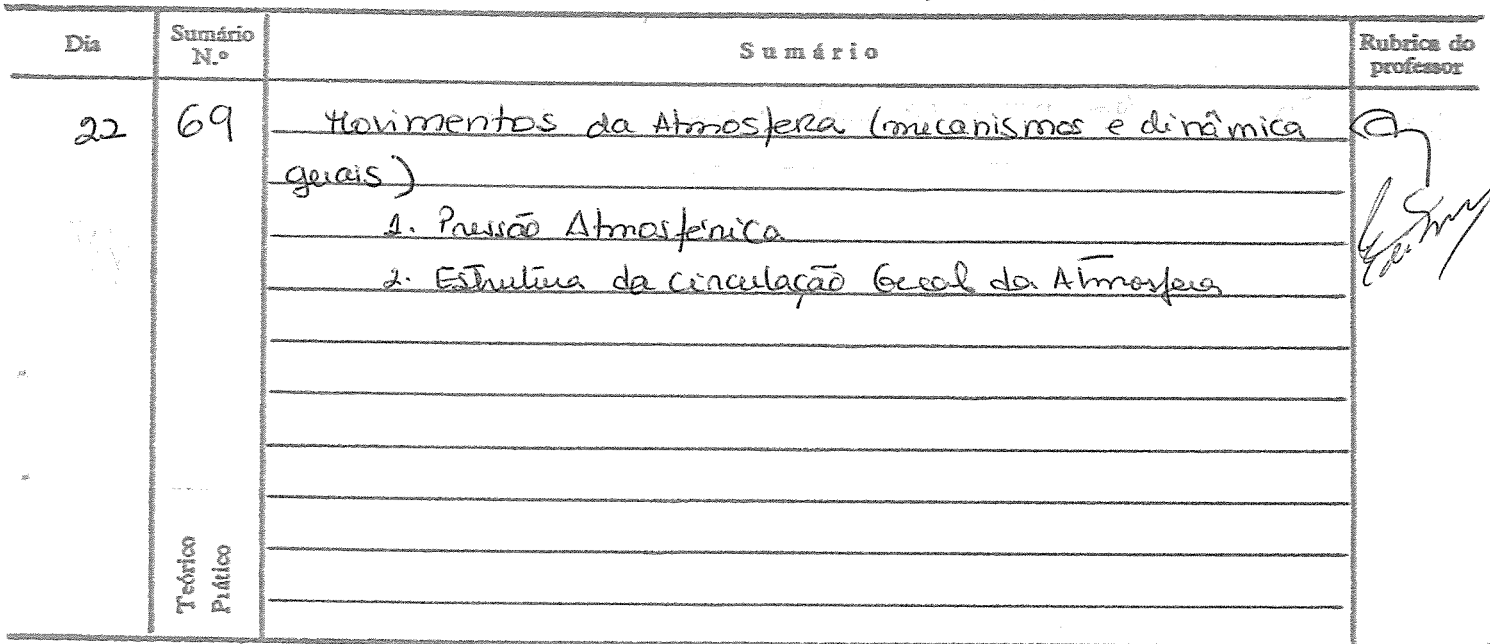 Dia
Sumário N.º
Sumário
Rubrica do professor
22 69 Movimentos da Atmosfera (mecanismos e dinâmica
gerais)
1. Pressão Atmosférica
2. Estrutura da Circulação Geral da Atmosfera
Teórico
Prático